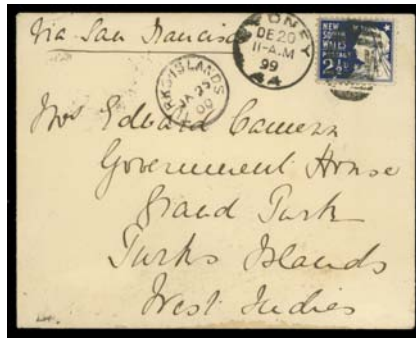 Via San Francisco
SYDNEY
DE 20
11-A.M
99
44
NEW
SOUTH
WALES
POSTAGE
2½
TURKS ISLANDS
JA 29
00
Mrs Edward Cameron
Government House
Grand Turk
Turks Islands
West Indies